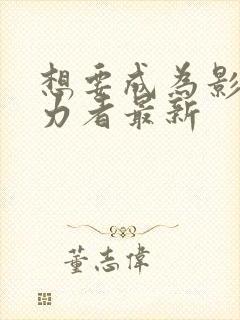 想要成为影
力者最新
董志偉